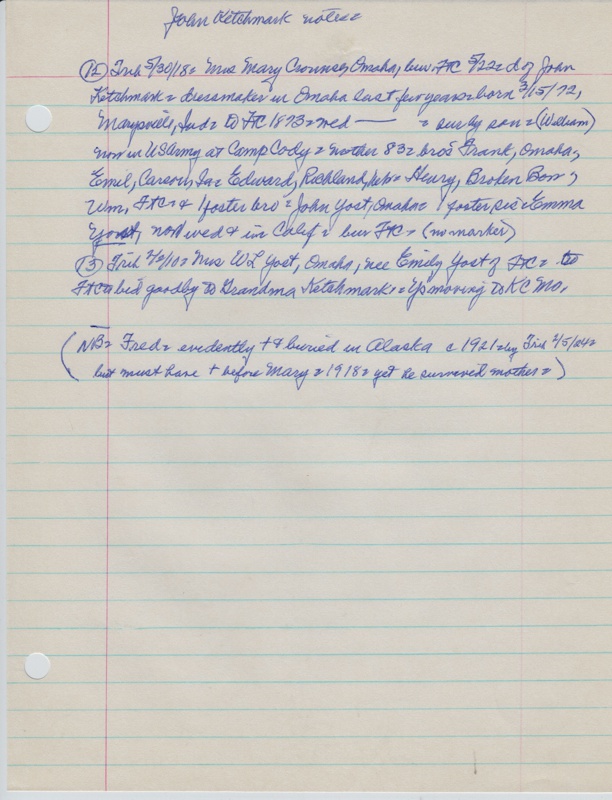 John Ketchmark notes=
(12) Trib 5/30/18= Mrs Mary Crounse, Omaha, bur. FtC 5/22= d of John
Ketchmark= dressmaker in Omaha last few years= born 3/15/72,
Marysville, Ind= to FtC 1873= wed —— = surv by son= (William)
now in US Army at Camp Cody= mother 83= bros Frank, Omaha,
Emil, Carson, Ia= Edward, Richland, Nebr= Henry, Broken Bow,
Wm, FtC= & 1 foster bro= John Yost, Omaha= 1 foster sis= Emma
Yost, not wed & in Calif= bur FtC= (no marker)
(13) Trib 2/2/10= Mrs WL Yost, Omaha, nee Emily Yost of FtC= to
FtC= bid goodby to Grandma Ketchmark= Up moving to KC Mo.
(NB= Fred= evidently + & buried in Alaska c 1921= by Trib 2/5/24=
but must have + before Mary= 1918= yet he survived mother=)